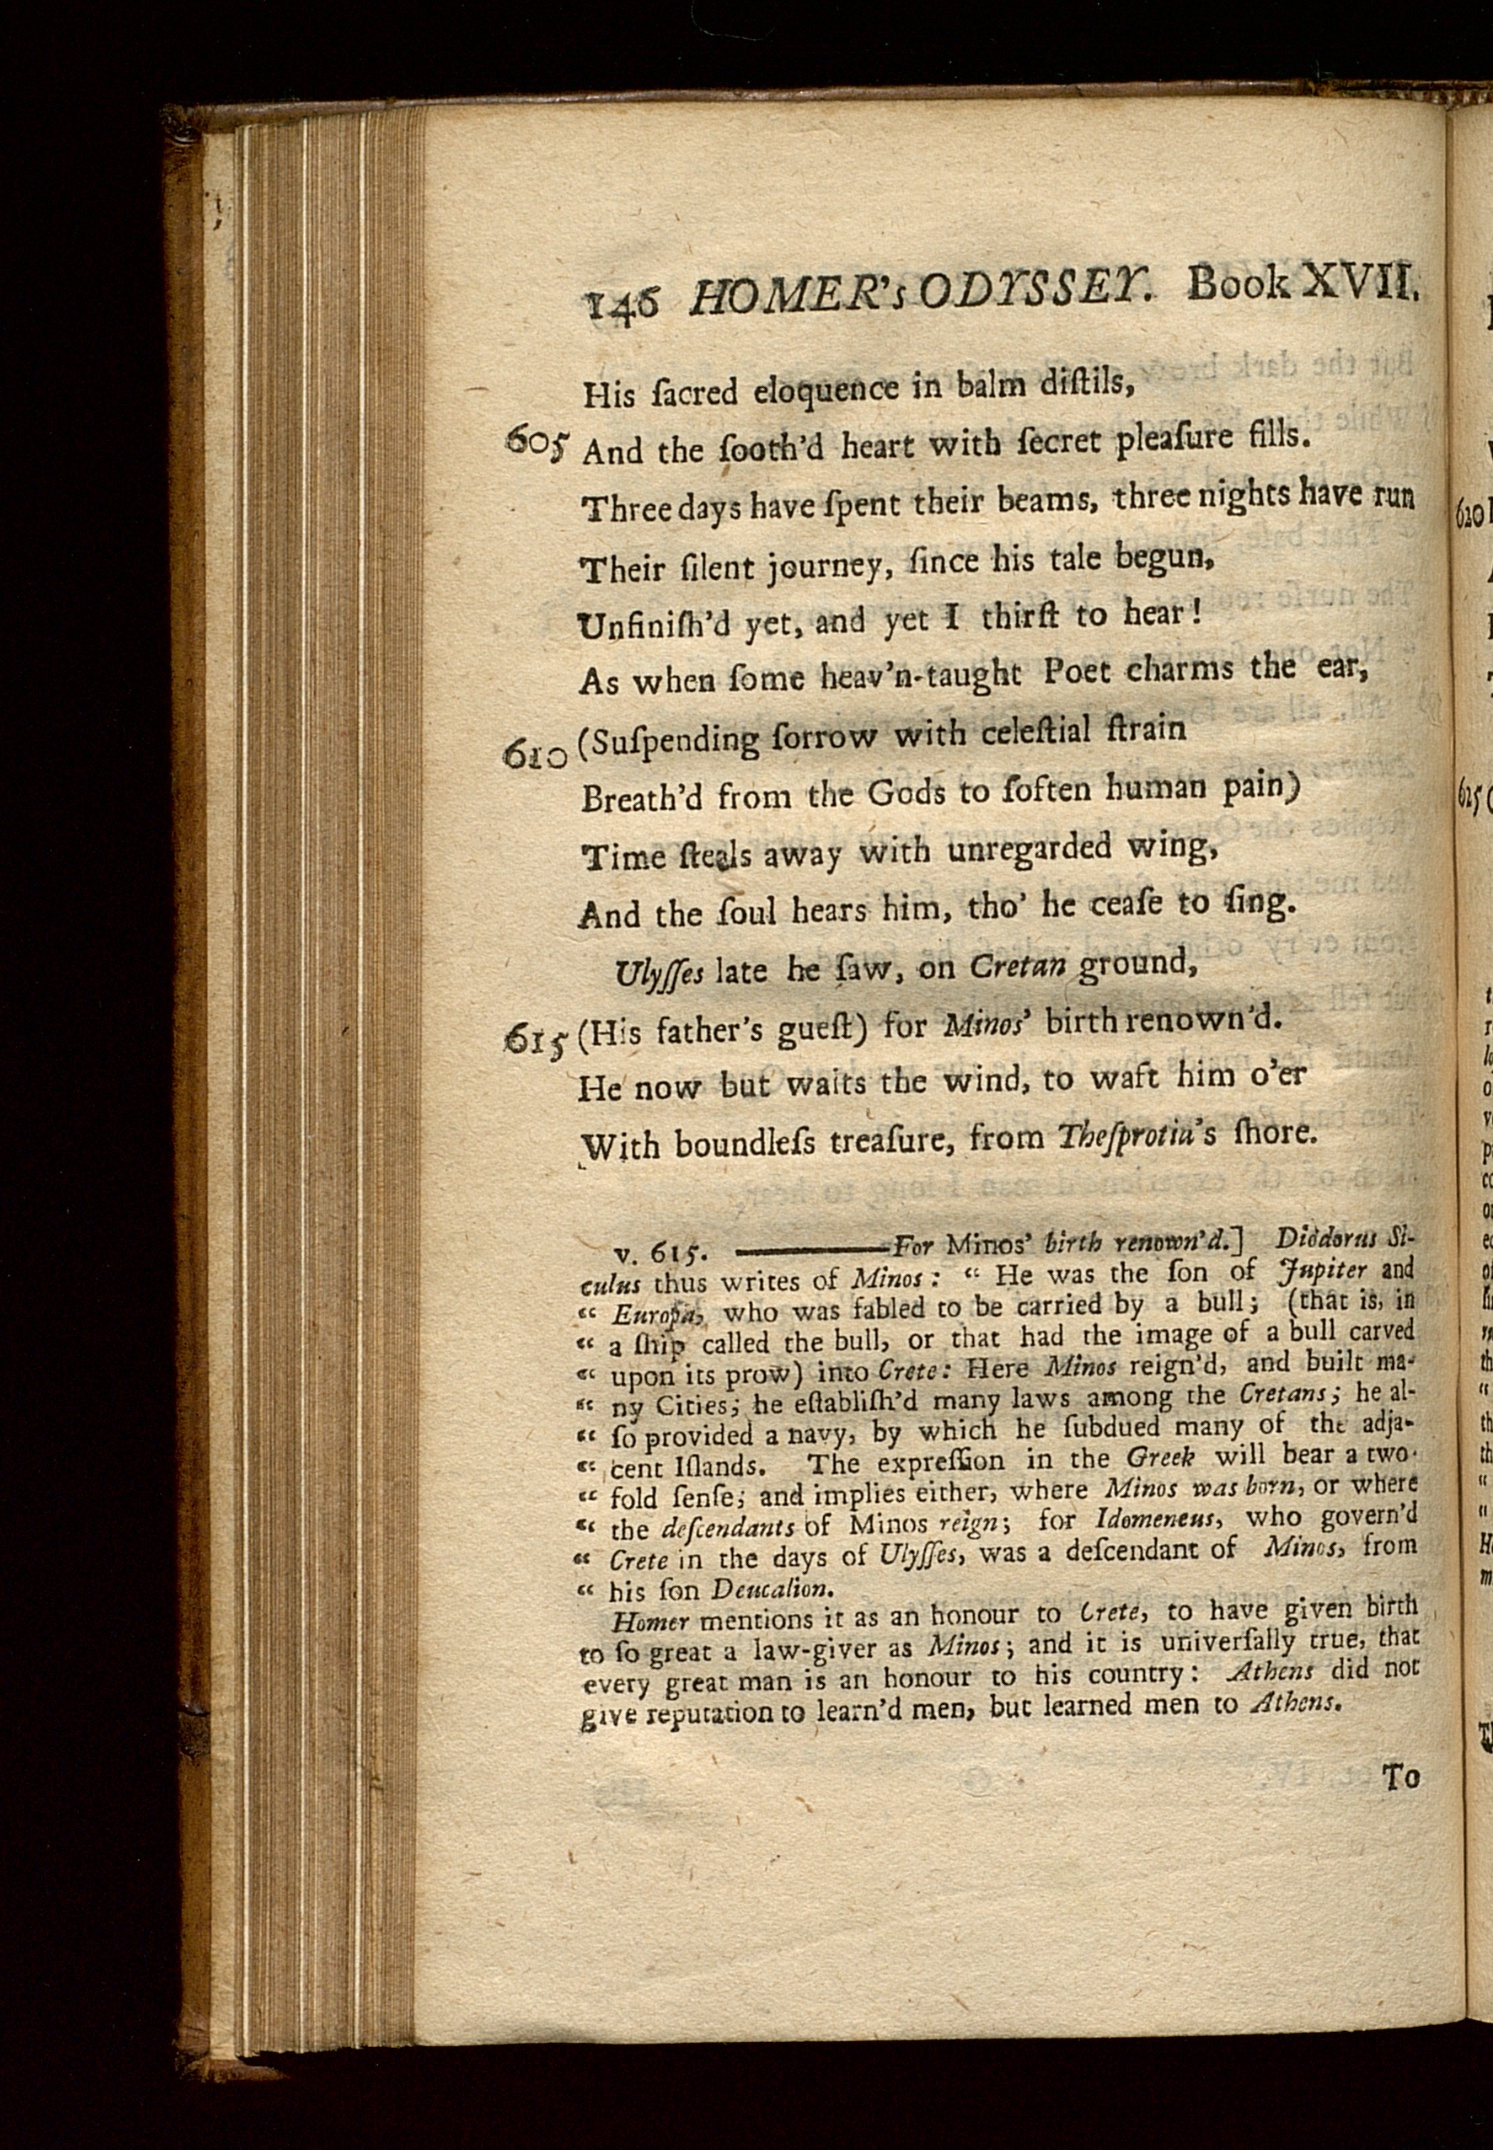 146 HOMER's ODYSSEY. Book XVII.
His ſacred eloquence in balm diſtils,
605 And the ſooth'd heart with ſecret pleaſure fills.
Three days have ſpent their beams, three nights have run
Their ſilent journey, ſince his tale begun,
Unfiniſh'd yet, and yet I thirſt to hear!
As when ſome heav'n-taught Poet charms the ear,
610 (Suſpending ſorrow with celeſtial ſtrain
Breath'd from the Gods to ſoften human pain)
Time ſteals away with unregarded wing,
And the ſoul hears him, tho' he ceaſe to ſing.
Ulyſſes late he ſaw, on Cretan ground,
615 (His father's gueſt) for Minos' birth renown'd.
He now but waits the wind, to waft him o'er
With boundleſs treaſure, from Theſprotia's ſhore.
v. 615. ———For Minos' birth renown'd.] Diodorus Si-
culus thus writes of Minos: “ He was the ſon of Jupiter and
“ Europa, who was fabled to be carried by a bull; (that is, in
“ a ſhip called the bull, or that had the image of a bull carved
“ upon its prow) into Crete: Here Minos reign'd, and built ma-
“ ny Cities; he eſtabliſh'd many laws among the Cretans; he al-
“ ſo provided a navy, by which he ſubdued many of the adja-
“ cent Iſlands. The expreſſion in the Greek will bear a two-
“ fold ſenſe; and implies either, where Minos was born, or where
“ the deſcendants of Minos reign; for Idomeneus, who govern'd
“ Crete in the days of Ulyſſes, was a deſcendant of Minos, from
“ his ſon Deucalion.
Homer mentions it as an honour to Crete, to have given birth
to ſo great a law-giver as Minos; and it is univerſally true, that
every great man is an honour to his country: Athens did not
give reputation to learn'd men, but learned men to Athens.
To
620
625